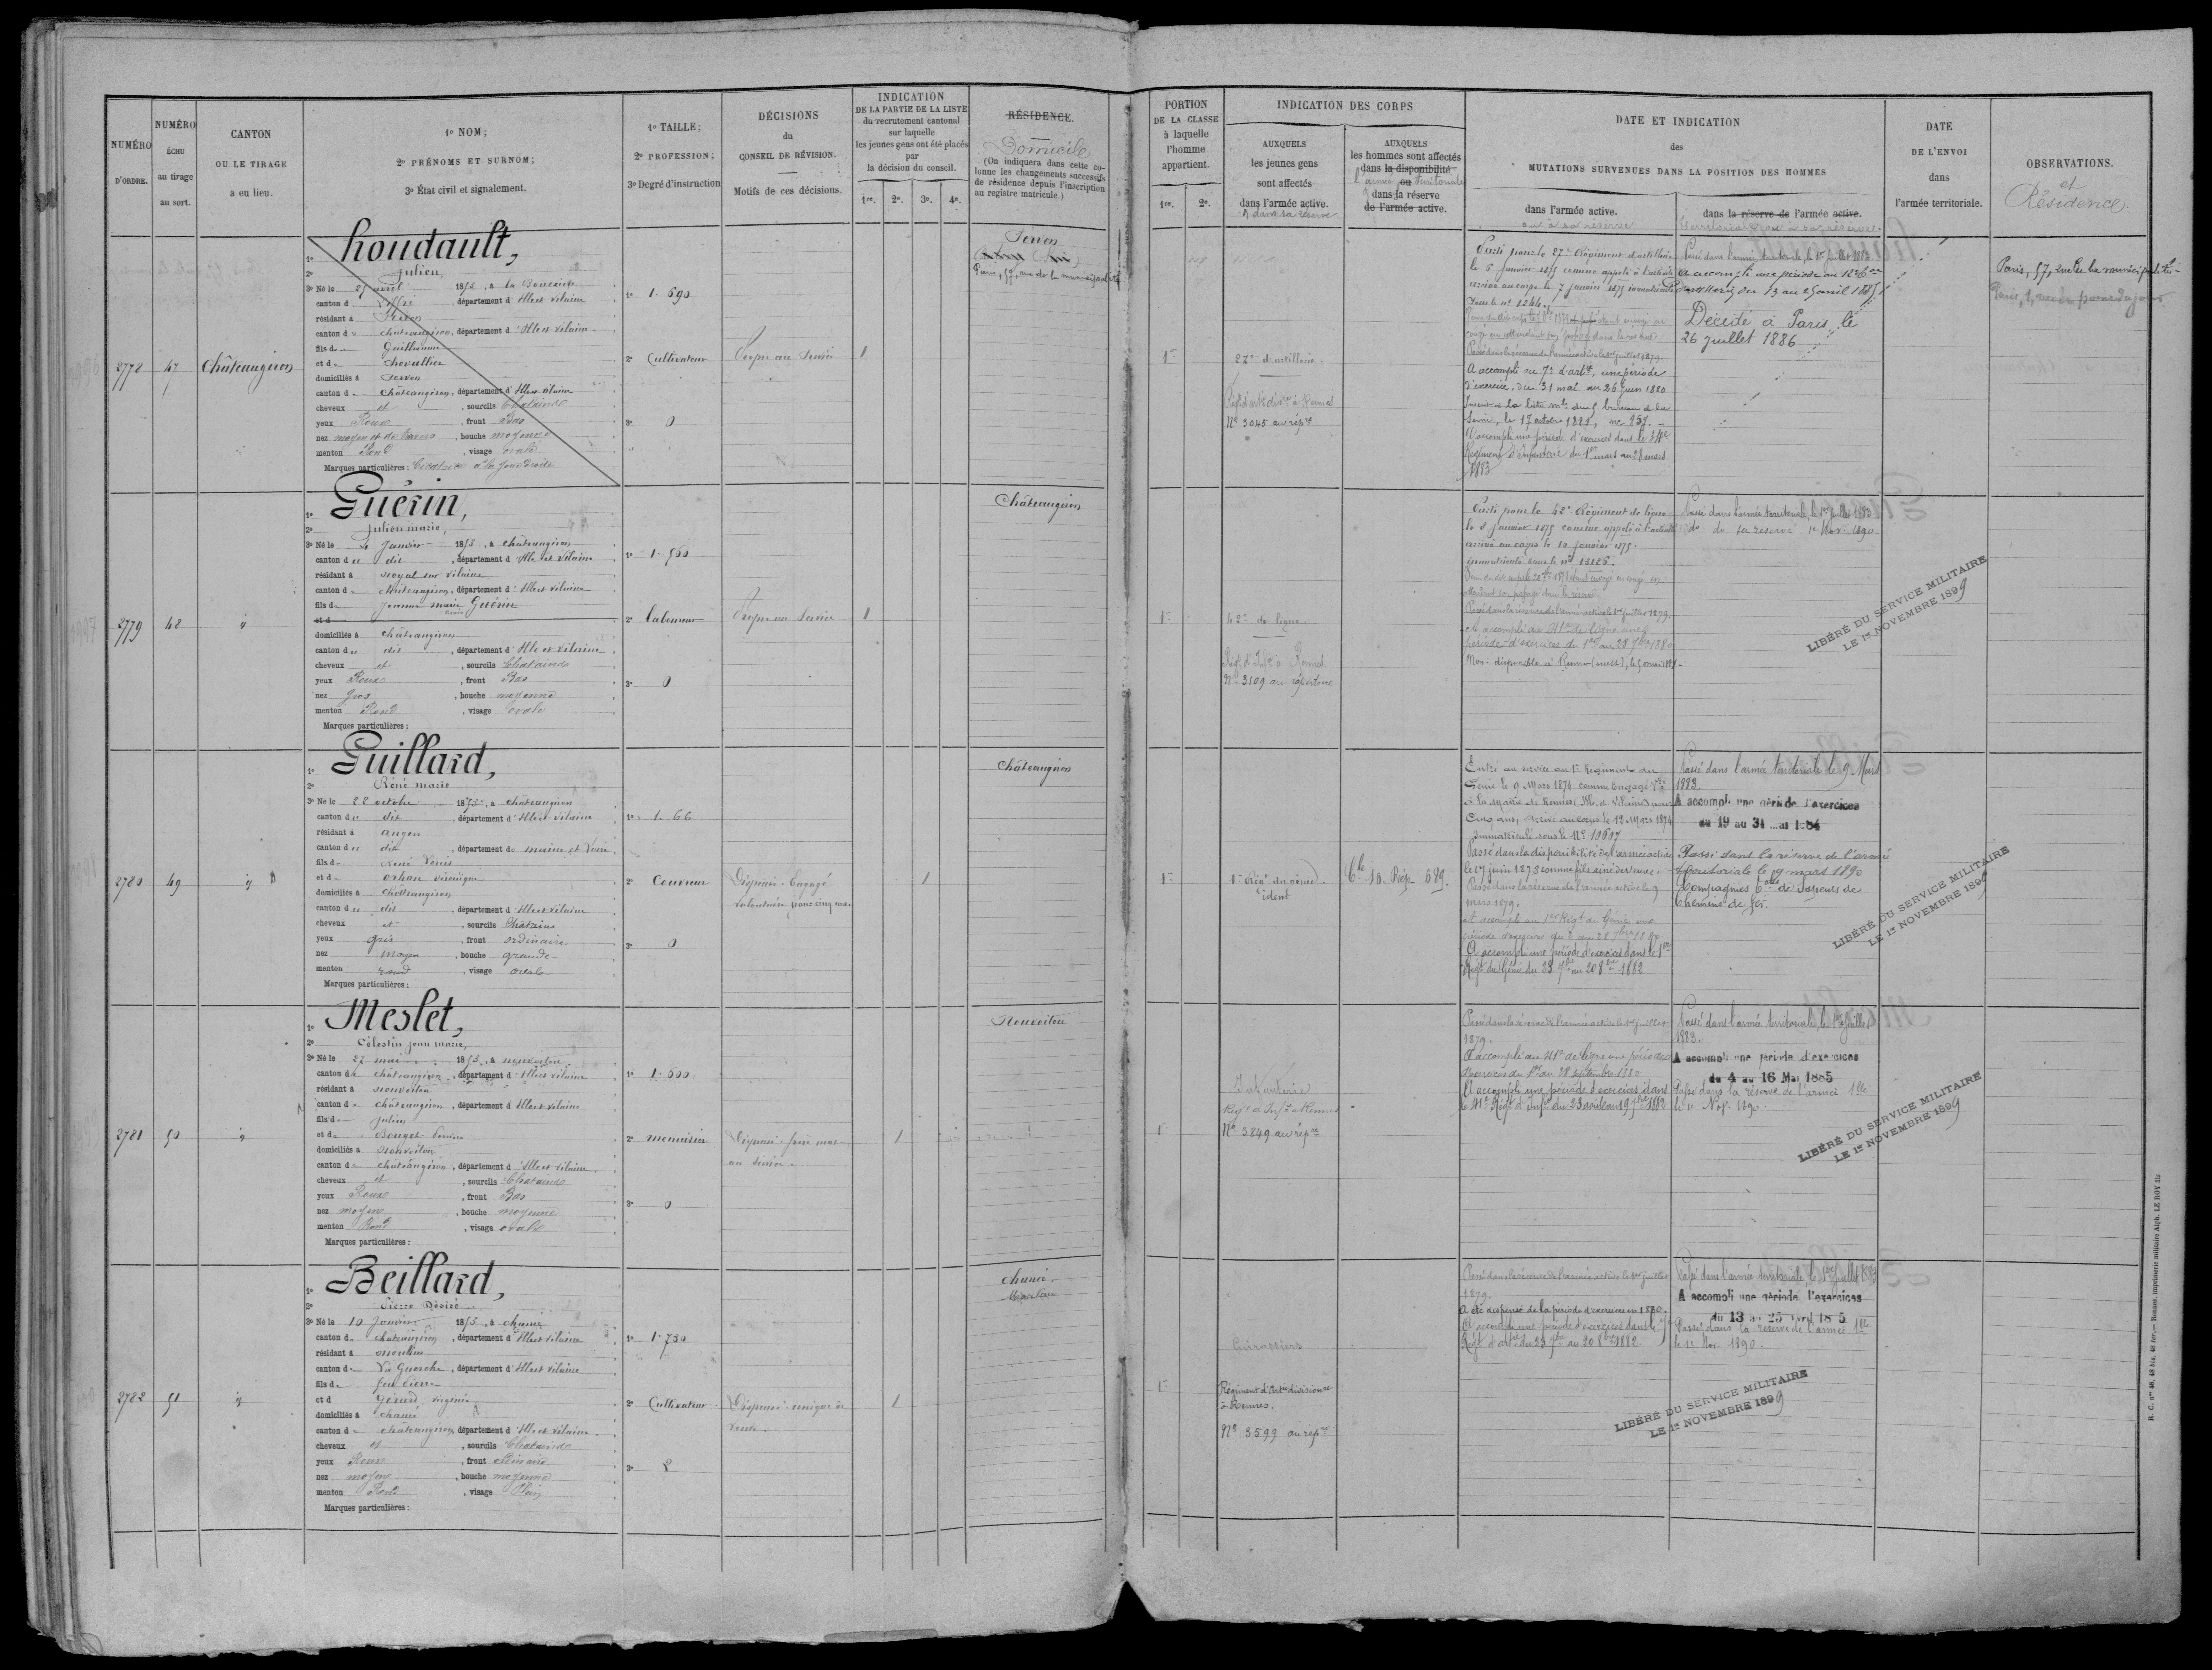 NUMÉRO
D'ORDRE.
NUMÉRO
ÉCHU
au tirage
au sort.
CANTON
OU LE TIRAGE
a eu lieu.
1º NOM;
2º PRÉNOMS ET SURNOM;
3º État civil et signalement.
1º TAILLE;
2º PROFESSION;
3º Degré d'instruction
DÉCISIONS
du
CONSEIL DE RÉVISION.
Motifs de ces décisions.
INDICATION
DE LA PARTIE DE LA LISTE
du recrutement cantonal
sur laquelle
les jeunes gens ont été placés
par
la décision du conseil.
1re. 2e. 3e. 4e.
RÉSIDENCE.
Domicile
(On indiquera dans cette co-
lonne les changements successifs
de résidence depuis l'inscription
au registre matricule.)
PORTION
DE LA CLASSE
à laquelle
l'homme
appartient.
1re. 2e.
INDICATION DES CORPS
AUXQUELS
les jeunes gens
sont affectés
dans l'armée active.
& dans sa réserve
AUXQUELS
les hommes sont affectés
dans la disponibilité
l'armée ou territoriale
dans la réserve
de l'armée active.
DATE ET INDICATION
des
MUTATIONS SURVENUES DANS LA POSITION DES HOMMES
dans l'armée active.
ou à sa réserve
dans la réserve de l'armée active.
territoriale ou à sa réserve.
DATE
DE L'ENVOI
dans
l'armée territoriale.
OBSERVATIONS.
et
Résidence
2778 47 Châteaugiron
1º houdault,
2º Julien,
3º Né le 25 avril 1853, à La Bouexière
canton de Liffré, département d'Ille et Vilaine
résidant à Servon
canton de châteaugiron, département d'Ille et Vilaine
fils de Guillaume
et de Chevallier
domiciliés à Servon
canton de Châteaugiron, département d'Ille et Vilaine
cheveux et, sourcils Chatains
yeux Roux, front Bas
nez moyen, bouche moyenne
menton Rond, visage ovale
Marques particulières: Cicatrice à la joue droite
1º 1.690
2º Cultivateur
3º 0
Propre au Service
1
Servon
Paris, 57, rue de la municipalité
1re
27e d'artillerie
Nº 3045 au répre
Parti pour le 27e Régiment d'artillerie
le 5 Janvier 1875 comme appelé à l'activité
arrivé au corps le 7 janvier 1875 immatriculé
sous le nº 1244.
Passé dans la réserve de l'armée active le 1er juillet 1879.
A accompli au 7e d'artie une période
d'exercice, du 31 mai au 26 Juin 1880
A accompli une période d'exercices dans le
Régiment d'infanterie du 1er mars au 28 mars
1883
Passé dans l'armée territoriale, le 1er juillet 1883.
A accompli une période au
d'artillerie du 13 au 25 avril 1885
Décédé à Paris le
26 Juillet 1886
Paris, 57, rue de la municipalité
2779 48 "
1º Guérin,
2º Julien marie,
3º Né le 4 Janvier 1853, à châteaugiron
canton du dit, département d'Ille et Vilaine
résidant à noyal sur vilaine
canton de châteaugiron, département d'Ille et Vilaine
fils de Jeanne marie Guérin
et d
domiciliés à Châteaugiron
canton du dit, département d'Ille et Vilaine
cheveux et, sourcils Chatains
yeux Roux, front Bas
nez gros, bouche moyenne
menton Rond, visage ovale
Marques particulières:
1º 1.560
2º laboureur
3º 0
Propre au Service
1
Châteaugiron
1re
42e de ligne
Régt d'Infie à Rennes
Nº 3109 au répertoire
Parti pour le 42e Régiment de ligne
le 8 Janvier 1875 comme appelé à l'activité
arrivé au corps le 10 janvier 1875.
immatriculé sous le nº 13126.
Passé dans la réserve de l'armée active le 1er juillet 1879.
A accompli au 41e de ligne une
période d'exercices du 1er au 28 7bre 1880
Non disponible à Rennes (ouest), le 5 mai 1887.
Passé dans l'armée territoriale, le 1er juillet 1883
do de sa réserve 1er Nov. 1890
LIBÉRÉ DU SERVICE MILITAIRE
LE 1er NOVEMBRE 1899
2780 49 "
1º Guillard,
2º Réné marie
3º Né le 22 octobre 1853, à châteaugiron
canton du dit, département d'Ille et Vilaine
résidant à angers
canton du dit, département de maine et Loire
fils de René Denis
et de orhan véronique
domiciliés à châteaugiron
canton du dit, département d'Ille et Vilaine
cheveux et, sourcils Châtains
yeux gris, front ordinaire
nez moyen, bouche grande
menton rond, visage ovale
Marques particulières:
1º 1.66
2º Couvreur
3º 0
Dispensé. Engagé
volontaire pour cinq ans.
1
Châteaugiron
1re
1er Régt du génie.
idem
Cie 10. Rép. 689.
Entré au service au 1er Régiment du
Génie le 9 Mars 1874 comme Engagé Vre
à la Mairie de Rennes (Ille et Vilaine) pour
cinq ans, arrivé au corps le 12 Mars 1874
immatriculé sous le Nº 10607
Passé dans la disponibilité de l'armée active
le 17 juin 1878 comme fils aîné de veuve.
Passé dans la réserve de l'armée active le 9
mars 1879.
A accompli au 1er Régt du Génie une
période d'exercices du 2 au 28 7bre 1880
A accompli une période d'exercices dans le 1er
Régt du Génie du 23 7bre au 20 8bre 1882
Passé dans l'armée territoriale le 9 Mars
1883.
A accompli une période d'exercices
du 19 au 31 mai 1884
Passé dans la réserve de l'armée
territoriale le 9 mars 1890
Compagnies de Sapeurs de
Chemins de fer.
LIBÉRÉ DU SERVICE MILITAIRE
LE 1er NOVEMBRE 1899
2781 50 "
1º Meslet,
2º Célestin jean marie,
3º Né le 27 mai 1853, à nouvoitou
canton de châteaugiron, département d'Ille et Vilaine
résidant à nouvoitou
canton de châteaugiron, département d'Ille et Vilaine
fils de Julien
et de Bouget
domiciliés à nouvoitou
canton de châteaugiron, département d'Ille et Vilaine
cheveux et, sourcils Chatains
yeux Roux, front Bas
nez moyen, bouche moyenne
menton Rond, visage ovale
Marques particulières:
1º 1.600
2º menuisier
3º 0
Dispensé. frère mort
au service.
1
Nouvoitou
1re
Infanterie
Régt d'Infie à Rennes
Nº 3849 au répre
Passé dans la réserve de l'armée active le 1er juillet
1879.
A accompli au 41e de ligne une période
d'exercices du 1er au 28 septembre 1880
A accompli une période d'exercices dans
le 41e Régt d'Infie du 23 août au 19 7bre 1882
Passé dans l'armée territoriale, le 1er Juillet
1883.
A accompli une période d'exercices
du 4 au 16 Mai 1885
Passé dans la réserve de l'armée tlle
le 1er Nov. 1890
LIBÉRÉ DU SERVICE MILITAIRE
LE 1er NOVEMBRE 1899
2782 51 "
1º Beillard,
2º Pierre Désiré
3º Né le 10 Janvier 1853, à chancé
canton de châteaugiron, département d'Ille et Vilaine
résidant à moulins
canton de La Guerche, département d'Ille et Vilaine
fils de feu Pierre
et d Gérard virginie
domiciliés à chancé
canton de châteaugiron, département d'Ille et Vilaine
cheveux et, sourcils Chatains
yeux Roux, front ordinaire
nez moyen, bouche moyenne
menton Rond, visage Plein
Marques particulières:
1º 1.730
2º Cultivateur
3º 2
Dispensé. unique de
veuve.
1
chancé.
1re
Cuirassiers
Régiment d'Artie divisionre
à Rennes.
Nº 3599 au répre
Passé dans la réserve de l'armée active le 1er juillet
1879.
A été dispensé de la période d'exercices en 1880.
A accompli une période d'exercices dans le 7e
Régt d'artie du 23 7bre au 20 8bre 1882.
Passé dans l'armée territoriale, le 1er juillet 1883
A accompli une période d'exercices
du 13 au 25 avril 1885
Passé dans la réserve de l'armée tlle
le 1er Nov. 1890.
LIBÉRÉ DU SERVICE MILITAIRE
LE 1er NOVEMBRE 1899
R. C. nos 48, 48 bis, 48 ter. — Rennes, imprimerie militaire Alph. LE ROY fils